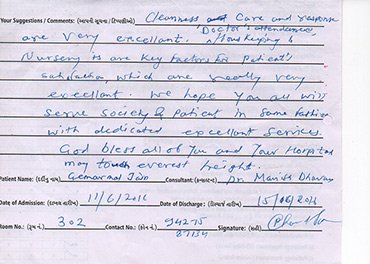 Your Suggestions / Comments: (આપની સૂચના / ટિપ્પણીઓ) Cleanness and Care and response
are very excellant. Doctor's attendance, House Keeping &
Nursery is are key factors for Patient's
satisfaction which are really very
excellant. We hope you all will
serve society & patient in same fashion
with dedicated excellant services.
God bless all of you and your Hospital
may touch everest height.
Patient Name: (દર્દીનું નામ) Gemarmal Jain Consultant: (કન્સલ્ટન્ટ) Dr. Manish
Date of Admission: (દાખલ તારીખ) 11/6/2016 Date of Discharge: (ડિસ્ચાર્જ તારીખ) 15/06/2016
Room No.: (રૂમ નં.) 302 Contact No.: (ફોન નં.) 94275 Signature: (સહી)
87134